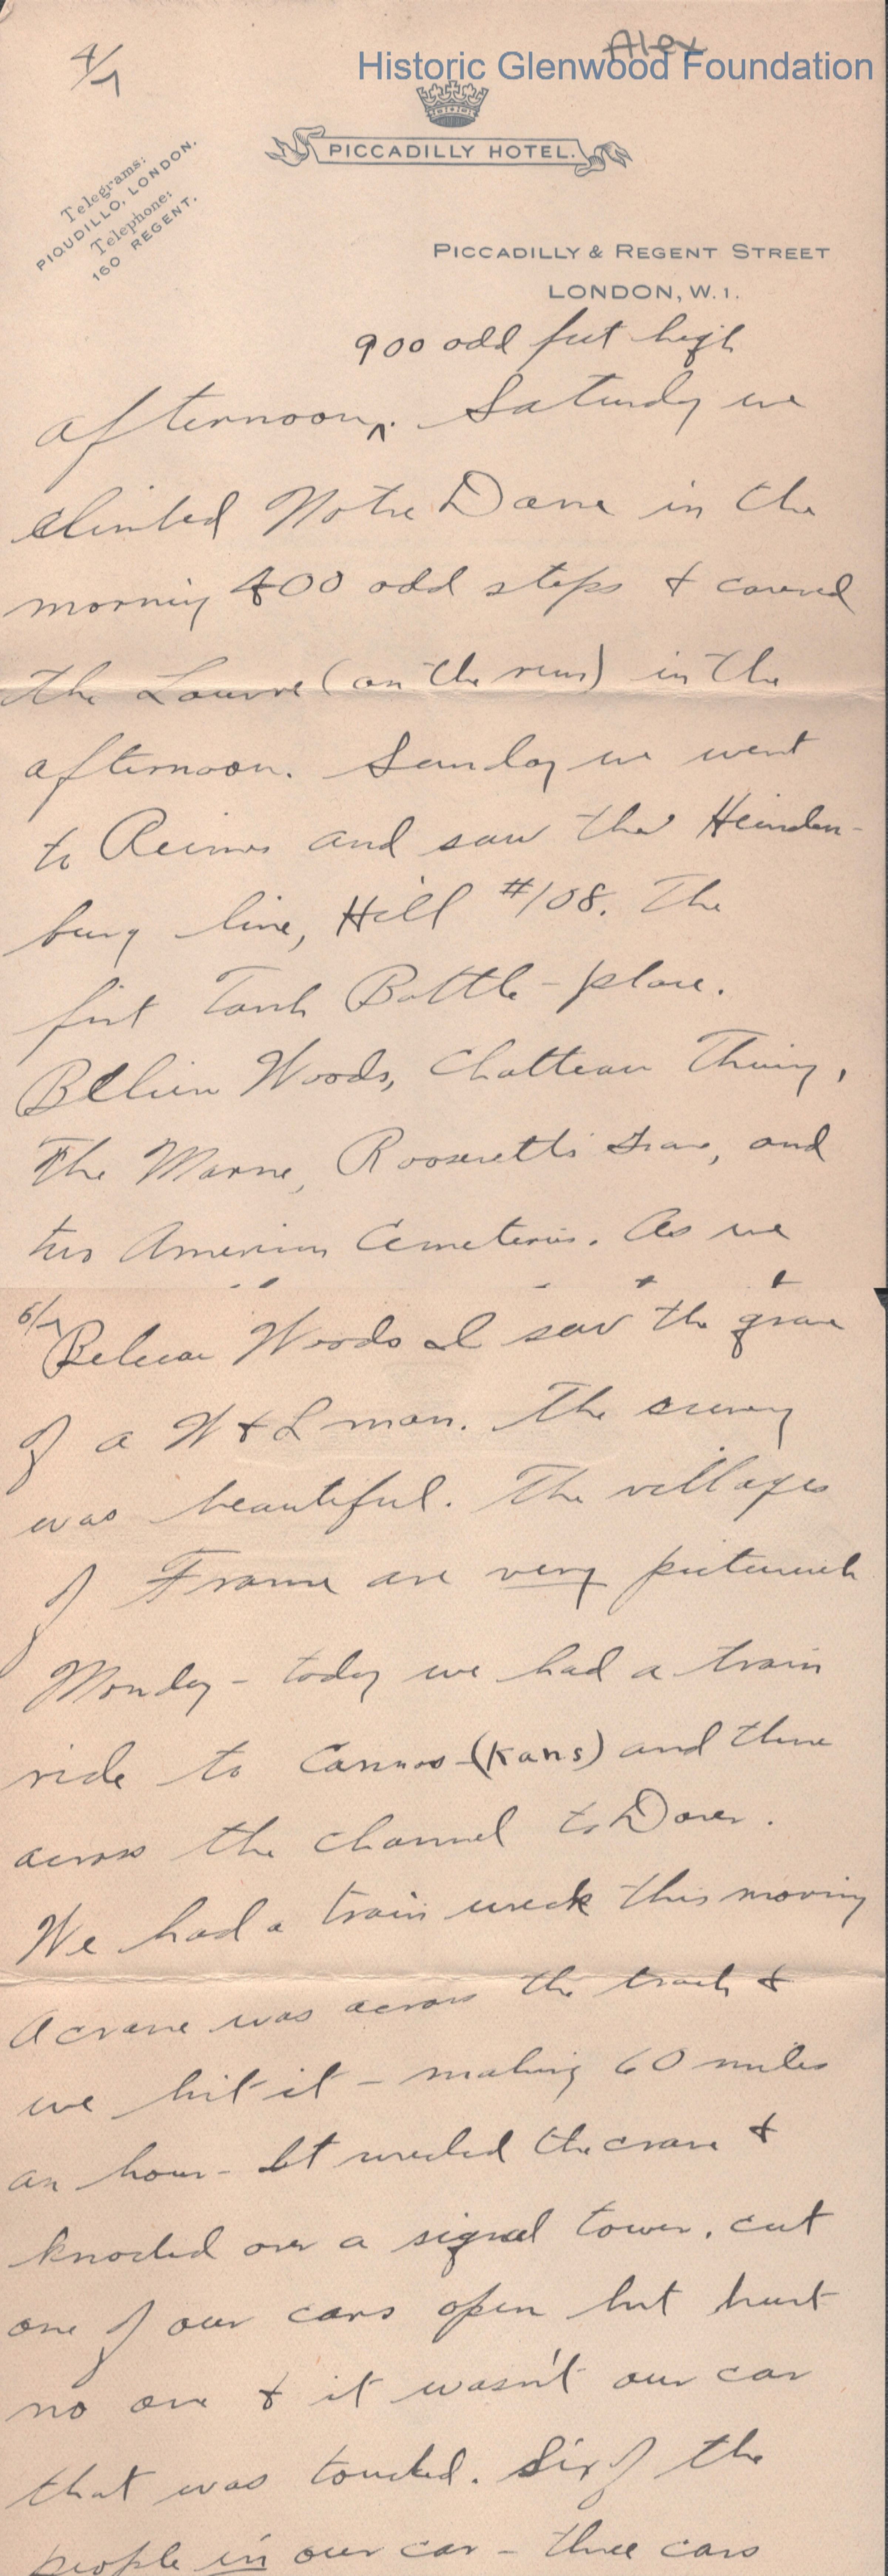 4/7
Alex
Historic Glenwood Foundation
PICCADILLY HOTEL.
Telegrams:
PIQUDILLO, LONDON.
Telephone:
160 REGENT.
PICCADILLY & REGENT STREET
LONDON, W.1.
900 odd feet high
afternoon ^. Saturday we
climbed Notre Dame in the
morning 400 odd steps & covered
the Louvre (on the run) in the
afternoon. Sunday we went
to Reims and saw the Heinden-
burg line, Hill #108. The
first Tank Battle-place.
Belleau Woods, Chatteau Thierry,
The Marne, Roosevelt's Grave, and
two American Cemeteries. As we
6/7
Beleau Woods I saw the grave
of a W & L man. The scenery
was beautiful. The villages
of France are very
Monday - today we had a train
ride to (Kans) and thence
across the channel to Dover.
We had a train wreck this morning
A crane was across the track &
we hit it - making 60 miles
an hour - It wrecked the crane &
knocked over a signal tower, cut
one of our cars open but hurt
no one & it wasn't our car
that was touched. Six of the
people in our car - three cars